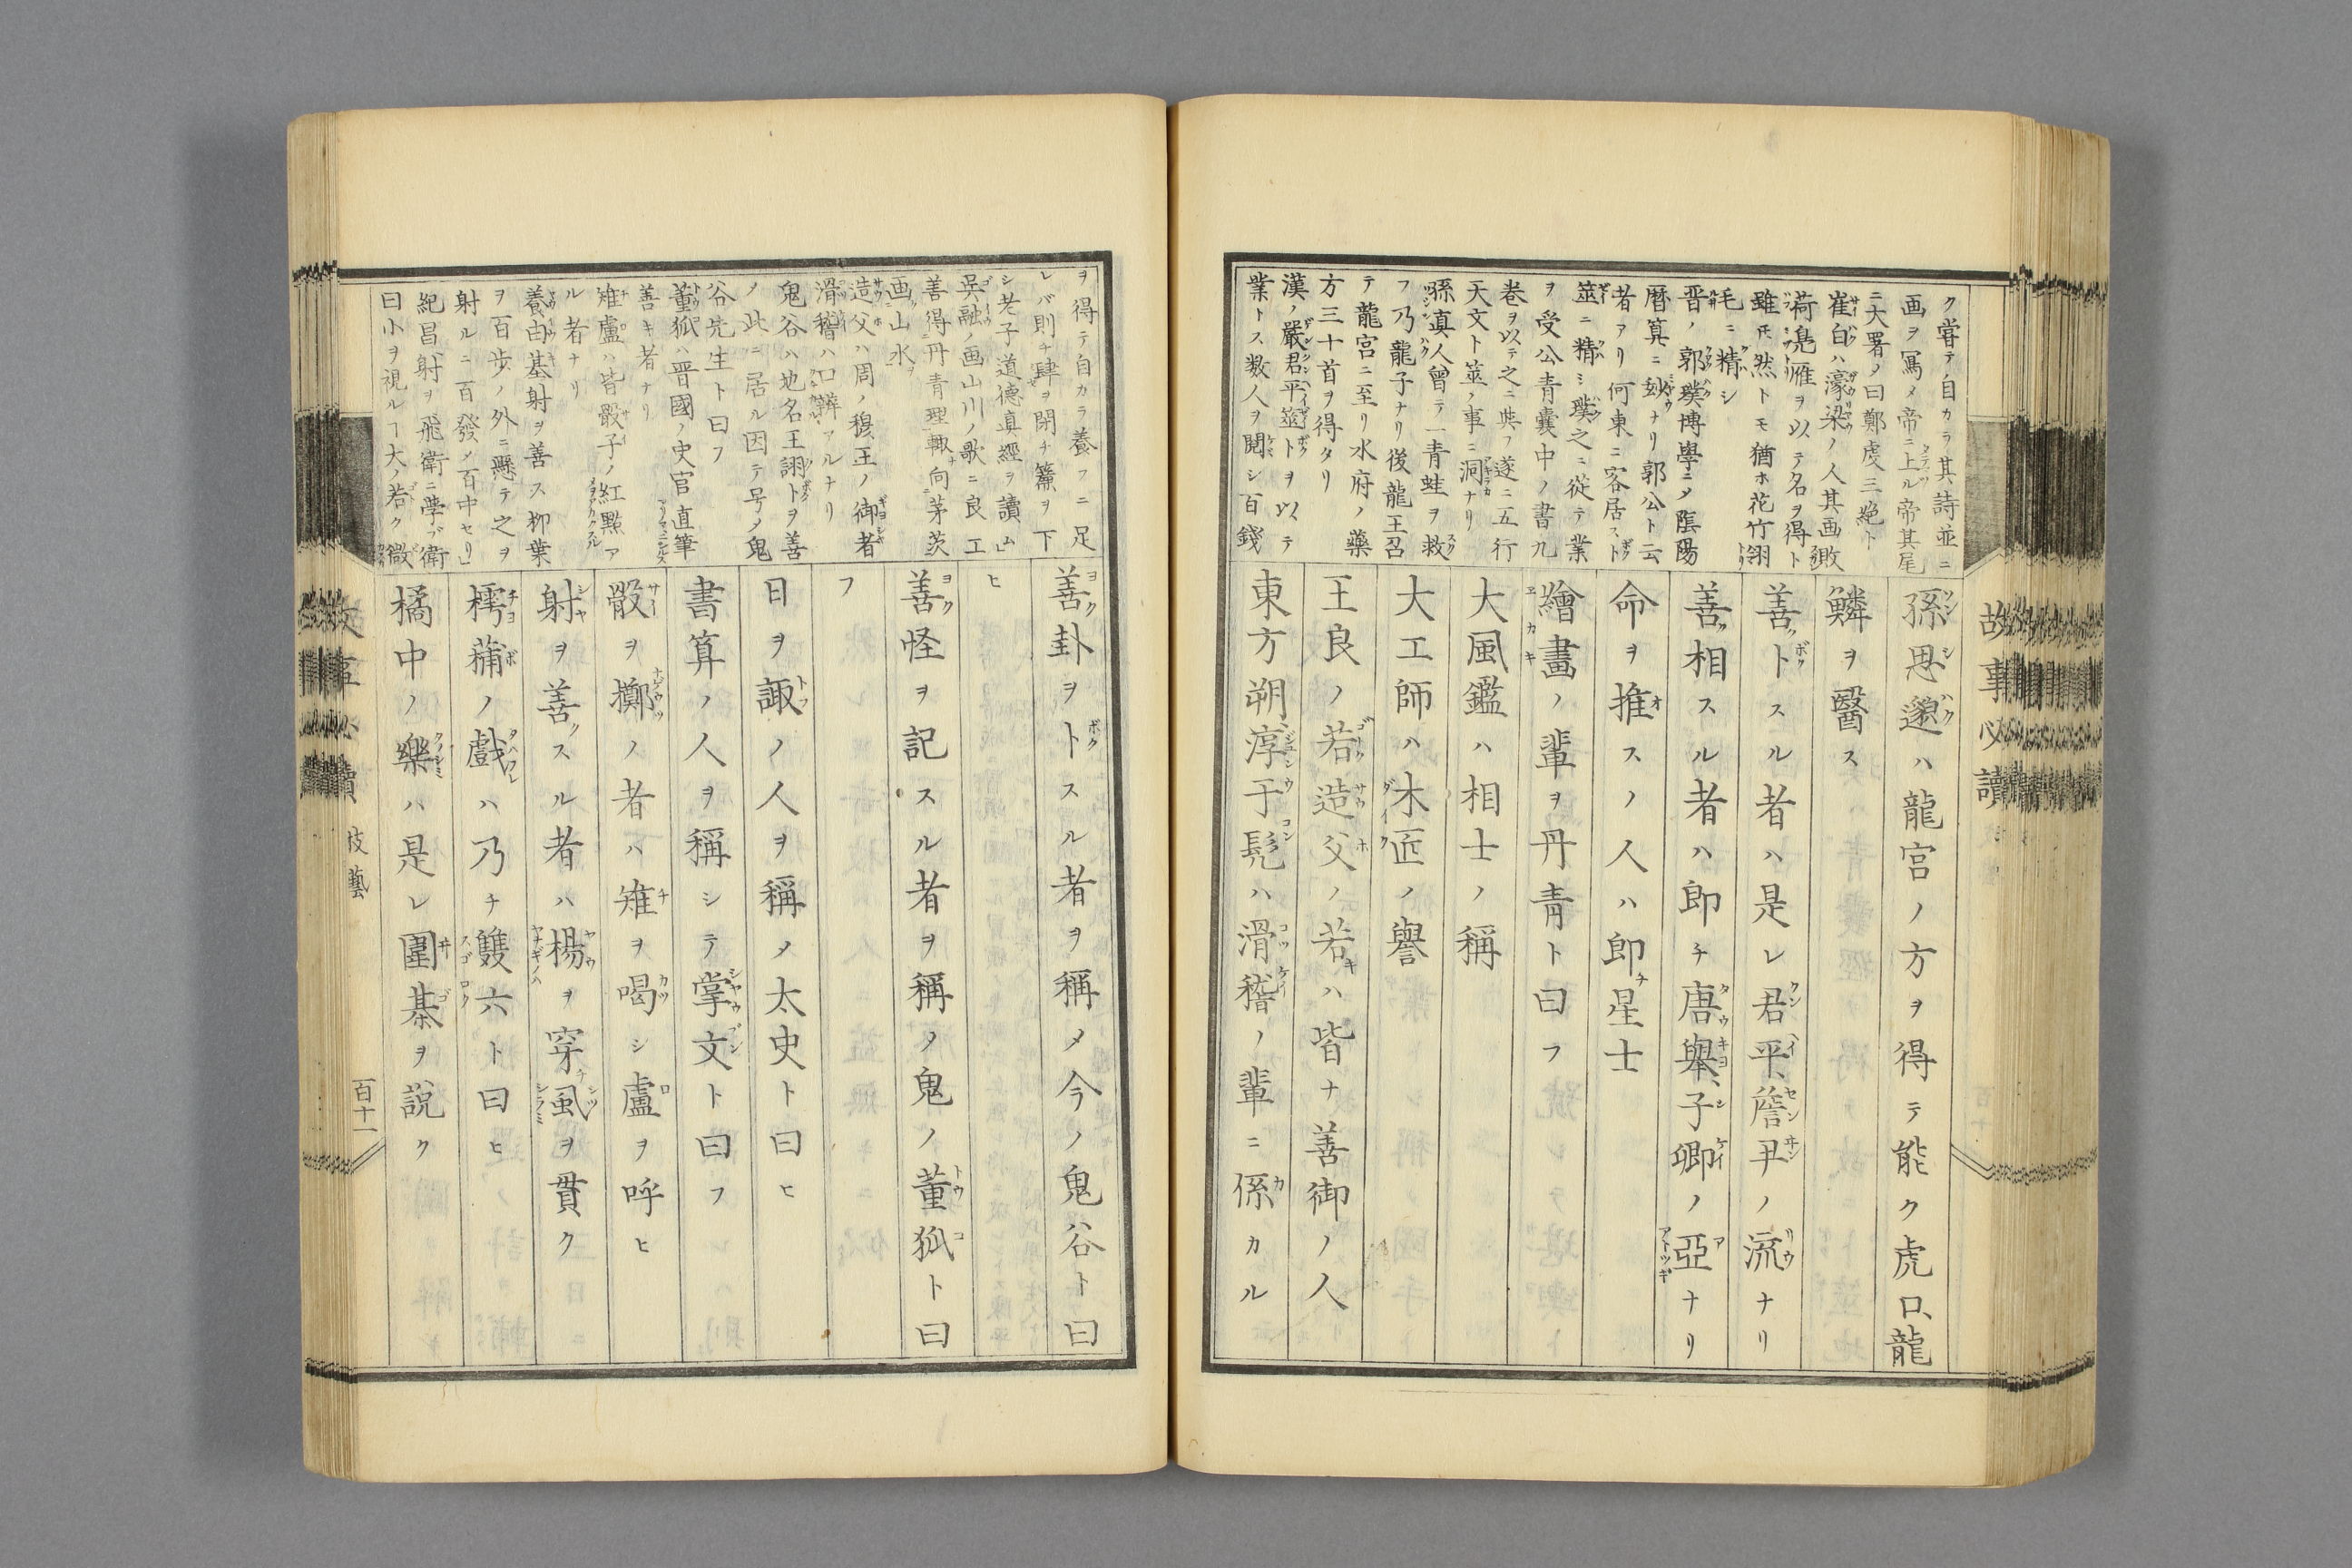 故事必讀
ク嘗テ自カラ其詩並ニ
画ヲ冩メ帝ニ上ル帝其尾
ニ大署ノ曰鄭虔三絶ト
崔白ハ濠梁ノ人其画敗
荷鳧雁ヲ以テ名ヲ得ト
雖𪜈然トモ猶ホ花竹翎
毛ニ精シ
晋ノ郭璞博學ニメ陰陽
暦算ニ玅ナリ郭公ト云
者アリ何東ニ客居スト
筮ニ精シ璞之ニ從テ業
ヲ受公青囊中ノ書九
巻ヲ以テ之ニ與フ遂ニ五行
天文ト筮ノ事ニ洞ナリ
孫真人曾テ一青蛙ヲ救
フ乃龍子ナリ後龍王召
テ龍宮ニ至リ水府ノ藥
方三十首ヲ得タリ
漢ノ嚴君平筮ト ヲ以テ
業トス数人ヲ閲シ百錢
孫思邈ハ龍宮ノ方ヲ得テ能ク虎口、龍
鱗ヲ醫ス
善クトスル者ハ是レ君平、詹尹ノ流ナリ
善ク相スル者ハ即チ唐舉、子卿ノ亞ナリ
命ヲ推スノ人ハ即チ星士
繪畫ノ輩ヲ丹青ト曰フ
大風鑑ハ相士ノ稱
大工師ハ木匠ノ譽
王良ノ若造父ノ若キハ皆ナ善御ノ人
東方朔淳于髡ハ滑稽ノ輩ニ係カル
ヲ得テ自カラ養フニ足
レバ則チ肆ヲ閉チ簾ヲ下
シ老子道德眞經ヲ讀ム
呉融ノ画山川ノ歌ニ良工
善得丹青理輙向茅茨
画山水
造父ハ周ノ穆王ノ御者
滑稽ハ口辨アルナリ
鬼谷ハ地名王詡トヲ善
ノ此ニ居ル因テ号ノ鬼
谷先生ト曰フ
董狐ハ晋國ノ史官直筆
善キ者ナリ
雉盧ハ皆骰子ノ紅點ア
ル者ナリ
養由基射ヲ善ス柳葉
ヲ百歩ノ外ニ懸テ之ヲ
射ルニ百發メ百中セリ
紀昌射ヲ飛衛ニ學ブ衛
曰小ヲ視ルヿ大ノ若ク微
善ク卦ヲトスル者ヲ稱メ今ノ鬼谷ト曰
ヒ
善ク怪ヲ記スル者ヲ稱メ鬼ノ董狐ト曰
フ
日ヲ諏ノ人ヲ稱メ太史ト曰ヒ
書算ノ人ヲ稱シテ掌文ト曰フ
骰ヲ擲ノ者ハ雉ヲ喝シ盧ヲ呼ヒ
射ヲ善クスル者ハ楊ヲ穿チ虱ヲ貫ク
樗蒲ノ戲ハ乃チ雙六ト曰ヒ
橘中ノ樂ハ是レ圍棊ヲ説ク
技藝
百十一